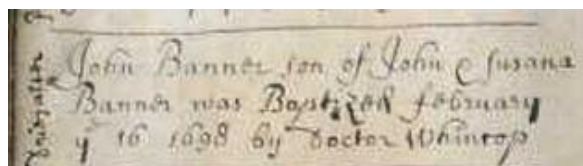 John Banner son of John & Susana
Banner was Baptized february
y 16 1698 by Doctor Whincop